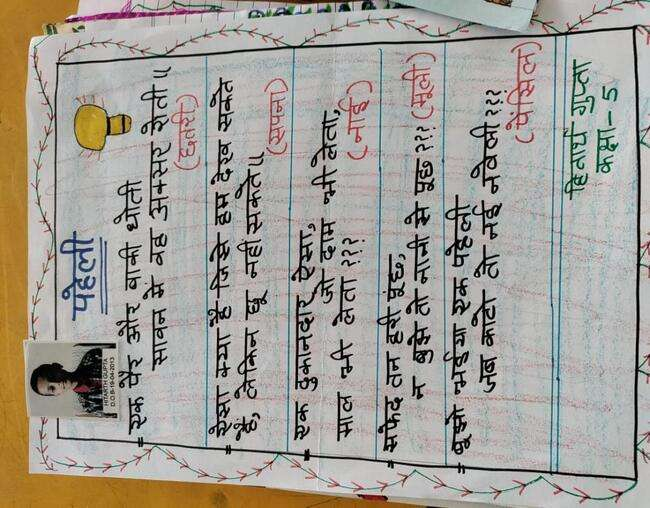 पहेली
HITARTH GUPTA
D.O.B-19-04-2013
= एक पैर और काली धोती
सावन में वह अक्सर रोती॥
(छतरी)
= ऐसा क्या है जिसे हम देख सकते
हैं, लेकिन छू नहीं सकते॥
(सपना)
= एक दुकानदार ऐसा,
जो दाम भी लेता,
माल भी लेता???
(नाई)
= सफेद तन हरी पूंछ,
न बुझे तो नानी से पूछ???
(मूली)
= बूझो भईया एक पहेली
जब काटो तो नई नवेली???
(पेंसिल)
हितार्थ गुप्ता
कक्षा-5